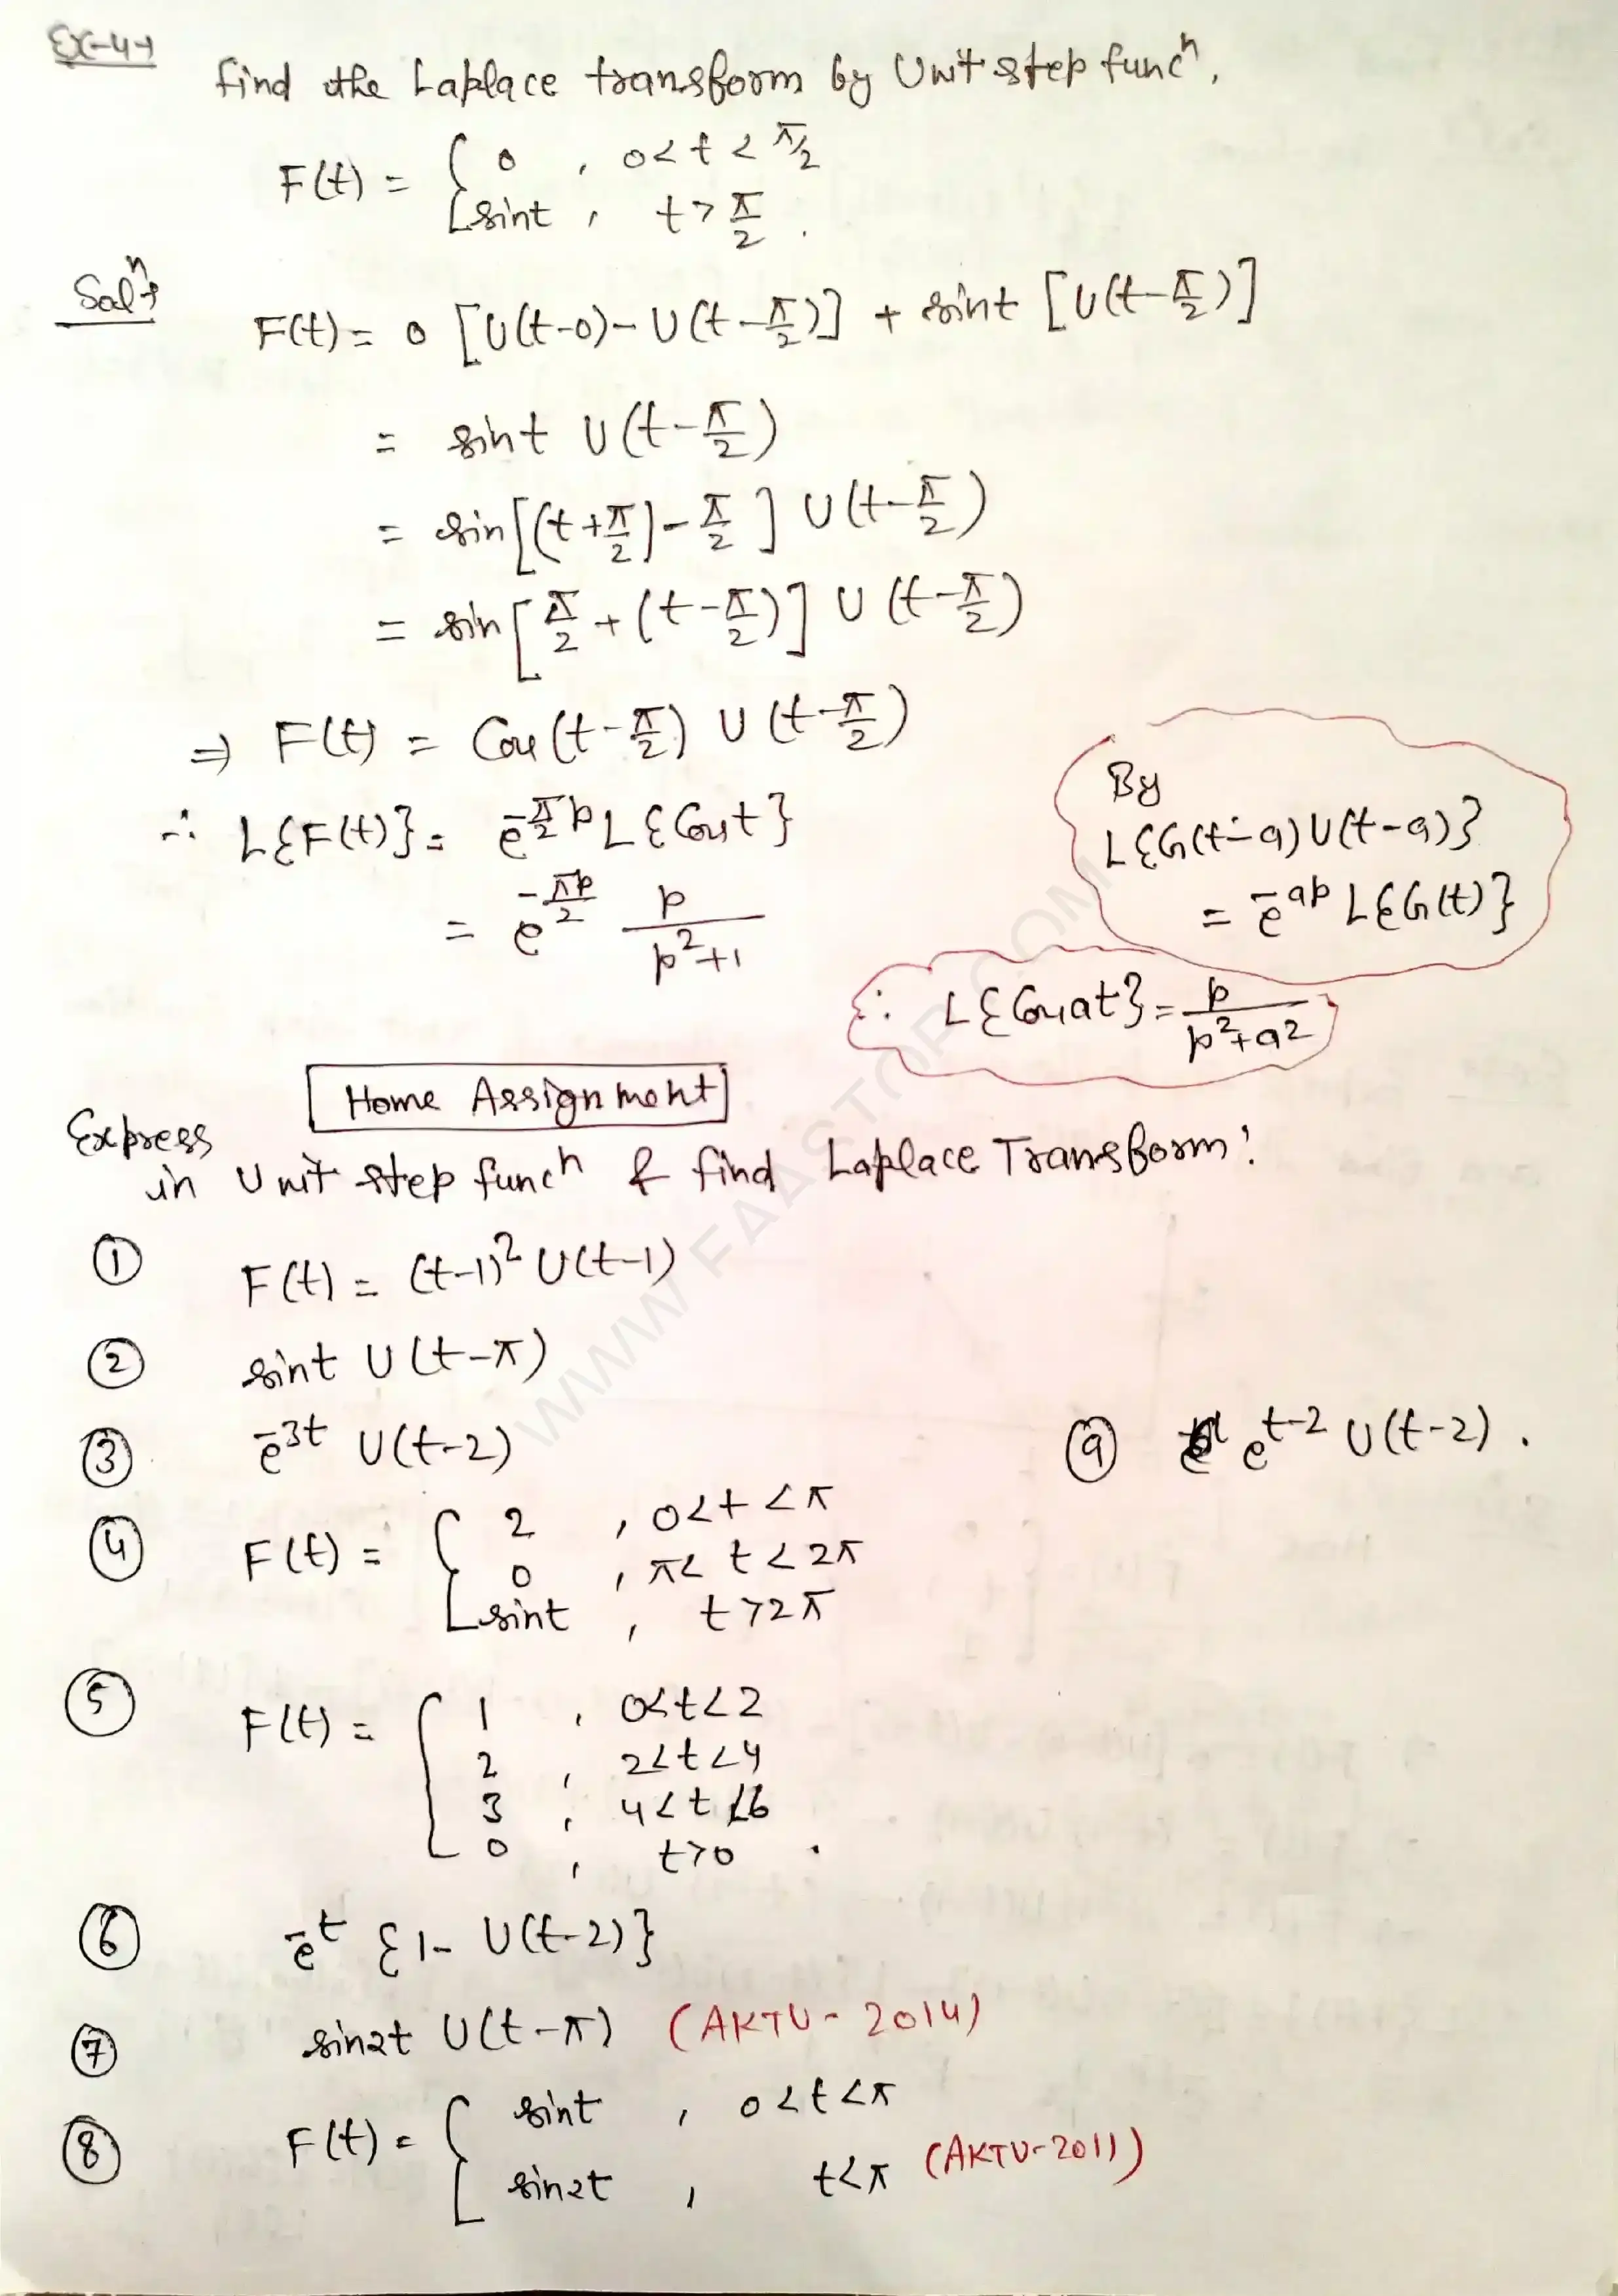 Ex-4→
find the Laplace transform by Unit step funcⁿ.
F(t) = { 0 , 0<t<π/2
sint , t>π/2 .
Solⁿ→
F(t) = 0 [U(t-0)-U(t-π/2)] + sint [U(t-π/2)]
= sint U(t-π/2)
= sin[(t+π/2)-π/2] U(t-π/2)
= sin[π/2+(t-π/2)] U(t-π/2)
⇒ F(t) = Cos(t-π/2) U(t-π/2)
∴ L{F(t)} = e^{-π/2 p} L{Cost}
= e^{-πp/2} p/(p²+1)
By
L{G(t-a)U(t-a)}
= e^{-ap} L{G(t)}
∵ L{Cosat} = p/(p²+a²)
Home Assignment
Express
in Unit step funcⁿ & find Laplace Transform:
① F(t) = (t-1)² U(t-1)
② sint U(t-π)
③ e^{-3t} U(t-2)
⑨ e^{t-2} U(t-2) .
④ F(t) = { 2 , 0<t<π
0 , π<t<2π
sint , t>2π
⑤ F(t) = { 1 , 0<t<2
2 , 2<t<4
3 , 4<t<6
0 , t>0 .
⑥ e^{-t} {1- U(t-2)}
⑦ sin2t U(t-π) (AKTU-2014)
⑧ F(t) = { sint , 0<t<π
sin2t , t<π (AKTU-2011)
WWW.FAASTOP.COM